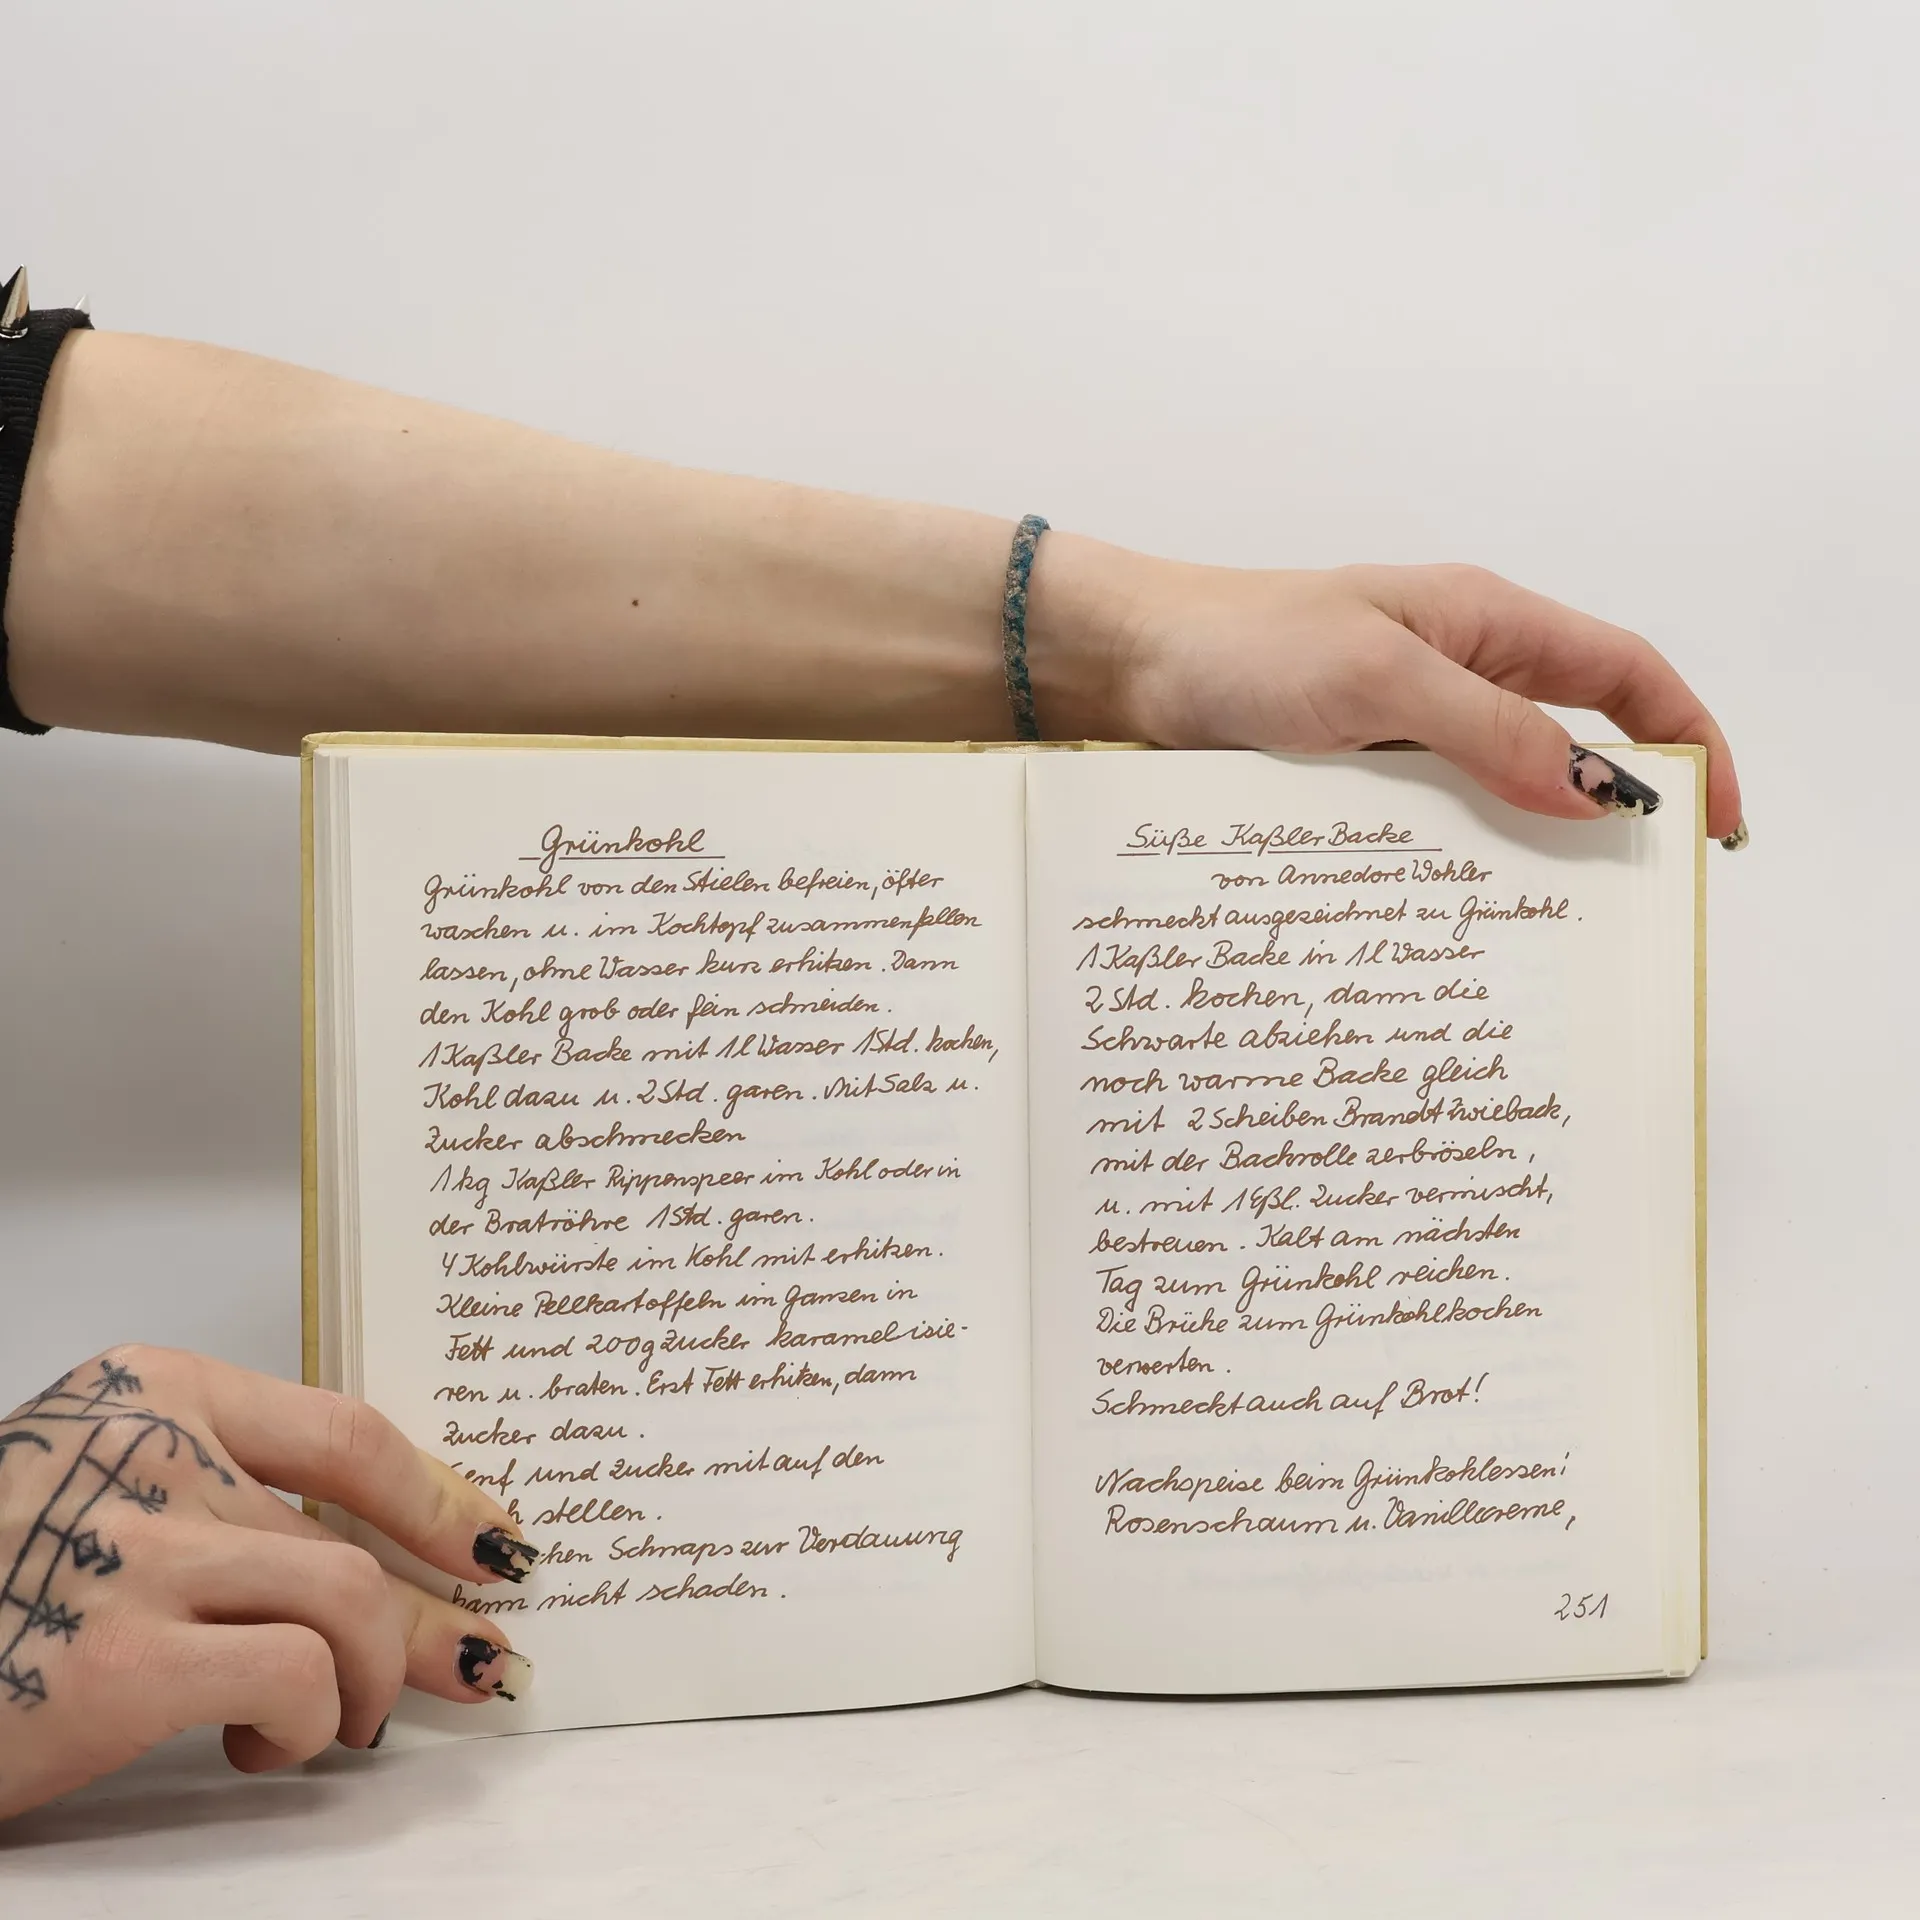 Grünkohl
Grünkohl von den Stielen befreien, öfter
waschen u. im Kochtopf zusammenfallen
lassen, ohne Wasser kurz erhitzen. Dann
den Kohl grob oder fein schneiden.
1 Kaßler Backe mit 1 l Wasser 1 Std. kochen,
Kohl dazu u. 2 Std. garen. Mit Salz u.
Zucker abschmecken
1 kg Kaßler Rippenspeer im Kohl oder in
der Bratröhre 1 Std. garen.
4 Kohlwürste im Kohl mit erhitzen.
Kleine Pellkartoffeln im Ganzen in
Fett und 200g Zucker karamelisie-
ren u. braten. Erst Fett erhitzen, dann
Zucker dazu.
enf und Zucker mit auf den
h stellen.
chen Schnaps zur Verdauung
kann nicht schaden.
Süße Kaßler Backe
von Annedore Wohler
schmeckt ausgezeichnet zu Grünkohl.
1 Kaßler Backe in 1 l Wasser
2 Std. kochen, dann die
Schwarte abziehen und die
noch warme Backe gleich
mit 2 Scheiben Brandt Zwieback,
mit der Backrolle zerbröseln,
u. mit 1 Eßl. Zucker vermischt,
bestreuen. Kalt am nächsten
Tag zum Grünkohl reichen.
Die Brühe zum Grünkohlkochen
verwerten.
Schmeckt auch auf Brot!
Nachspeise beim Grünkohlessen:
Rosenschaum u. Vanillecreme,
251